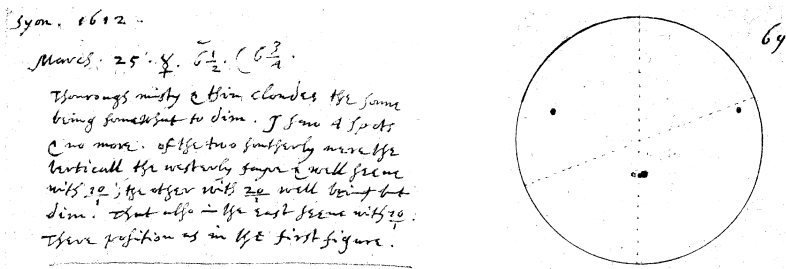 Syon. 1612.
March. 25. ☿. 6 1/2. ( 6 3/4.
Thourough misty & thin cloudes the sonne
being somewhat to dim. I saw 4 spots
& no more. of the two southerly nere the
verticall the westerly fayre & well seene
with 10/1; the other with 20/1 well being but
dim. That also in the east seene with 10/1.
There position as in the first figure.
69